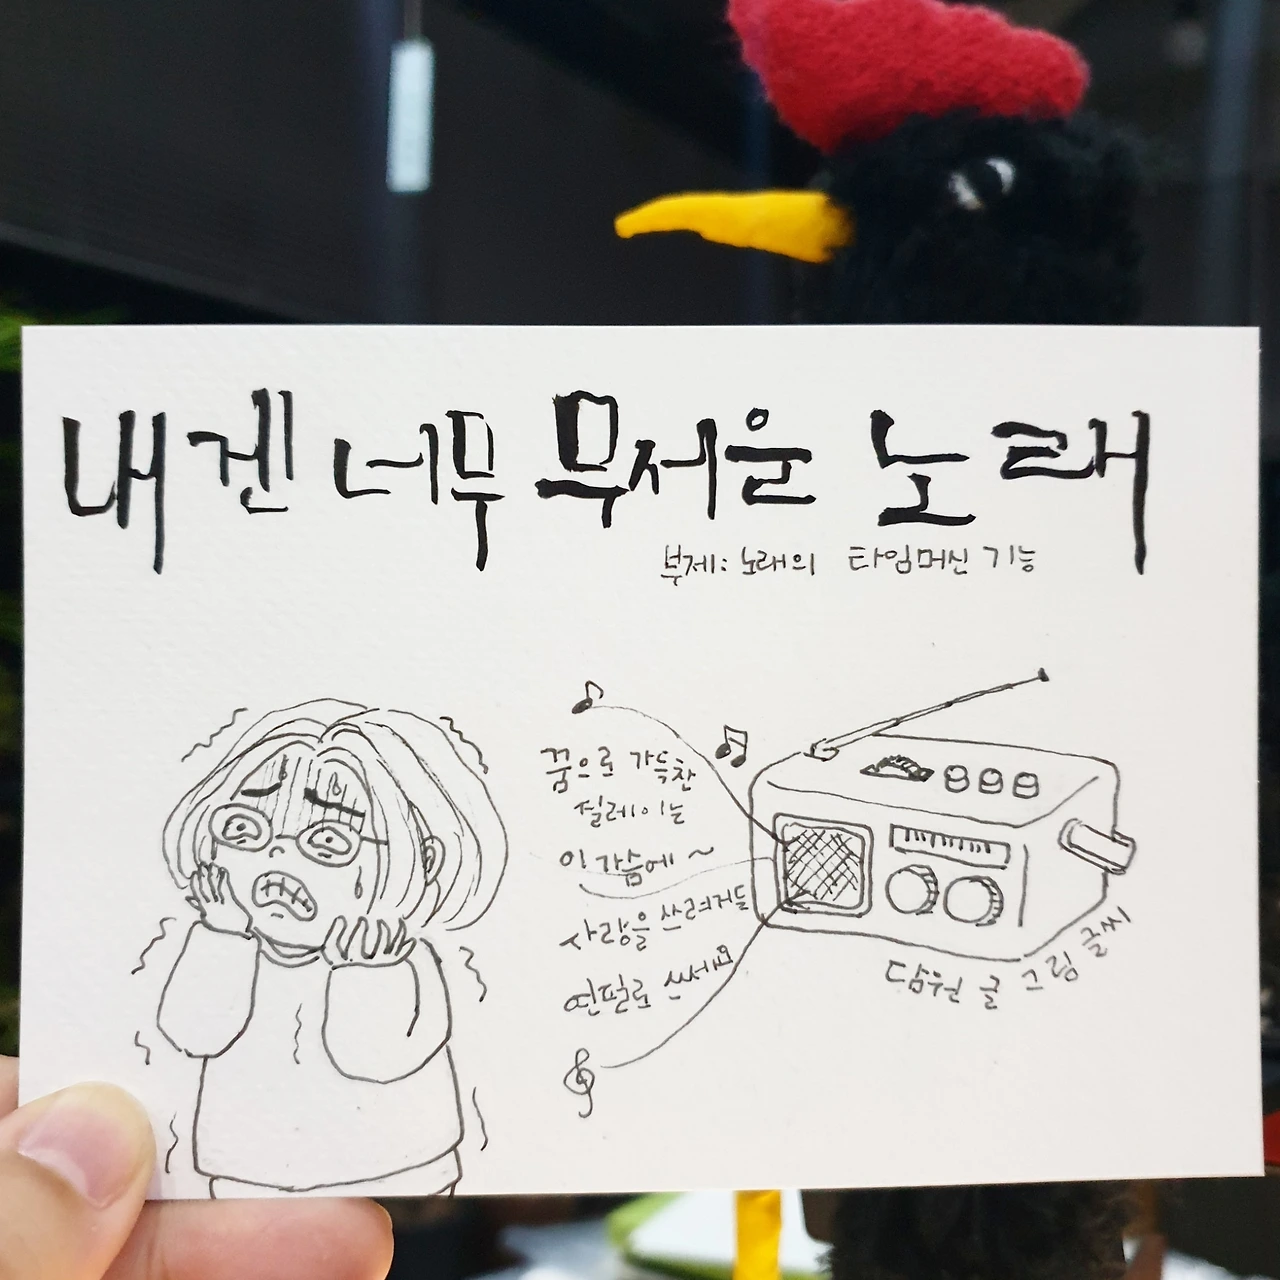 내겐 너무 무서운 노래
부제: 노래의 타임머신 기능
꿈으로 가득찬
설레이는
이 가슴에 ~
사랑을 쓰려거든
연필로 쓰세요
담원 글 그림 글씨